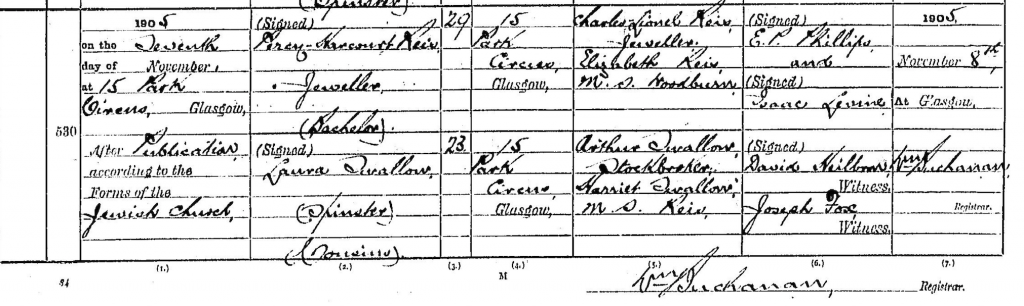 (Spinster)
1905
on the Seventh
day of November,
at 15 Park
Circus, Glasgow,
After Publication,
according to the
Forms of the
Jewish Church,
530
(Signed)
Percy Harcourt Reis,
Jeweller,
(Bachelor).
(Signed)
Laura Swallow,
(Spinster)
(Cousins).
29
23
15
Park
Circus,
Glasgow,
15
Park
Circus
Glasgow,
Charles Lionel Reis,
Jeweller.
Elizabeth Reis,
M. S. Woodburn
Arthur Swallow,
Stockbroker,
Harriet Swallow,
M. S. Reis,
(Signed)
E. P. Phillips,
and
(Signed)
Isaac Levine
(Signed)
David Heilbron,
Witness.
Joseph Fox,
Witness.
1905,
November 8th,
At Glasgow.
Wm Buchanan,
Registrar.
(1.) (2.) (3.) (4.) (5.) (6.) (7.)
84
M
Wm Buchanan, Registrar.